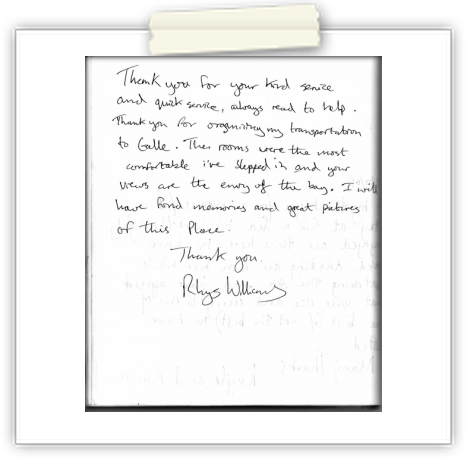 Thank you for your kind service
and quick service, always read to help.
Thank you for organising my transportation
to Galle. Ther rooms were the most
comfortable i've slepped in and your
views are the envy of the bay. I will
have fond memories and great pictures
of this Place.
Thank you.
Rhys Williams